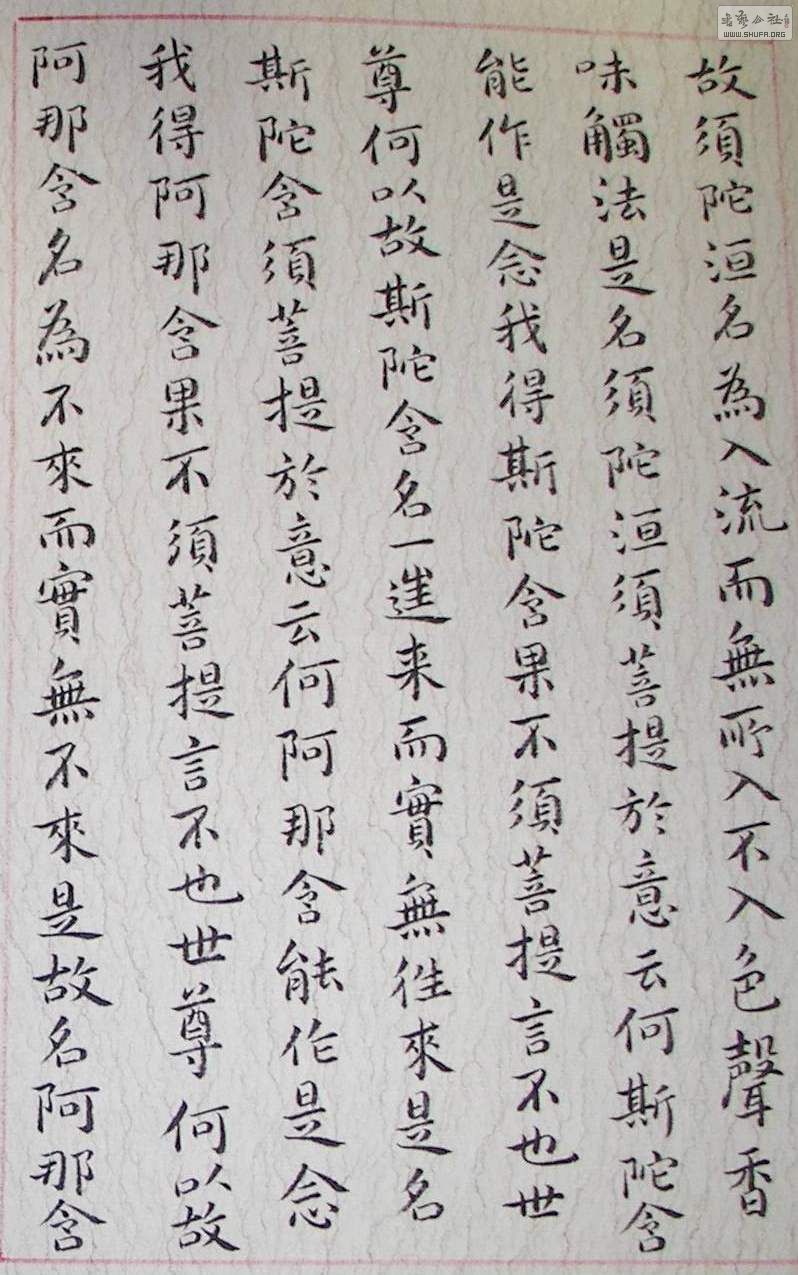 故須陀洹名為入流而無所入不入色聲香
味觸法是名須陀洹須菩提於意云何斯陀含
能作是念我得斯陀含果不須菩提言不也世
尊何以故斯陀含名一進来而實無往來是名
斯陀含須菩提於意云何阿那含能作是念
我得阿那含果不須菩提言不也世尊何以故
阿那含名為不來而實無不來是故名阿那含
WWW.SHUFA.ORG